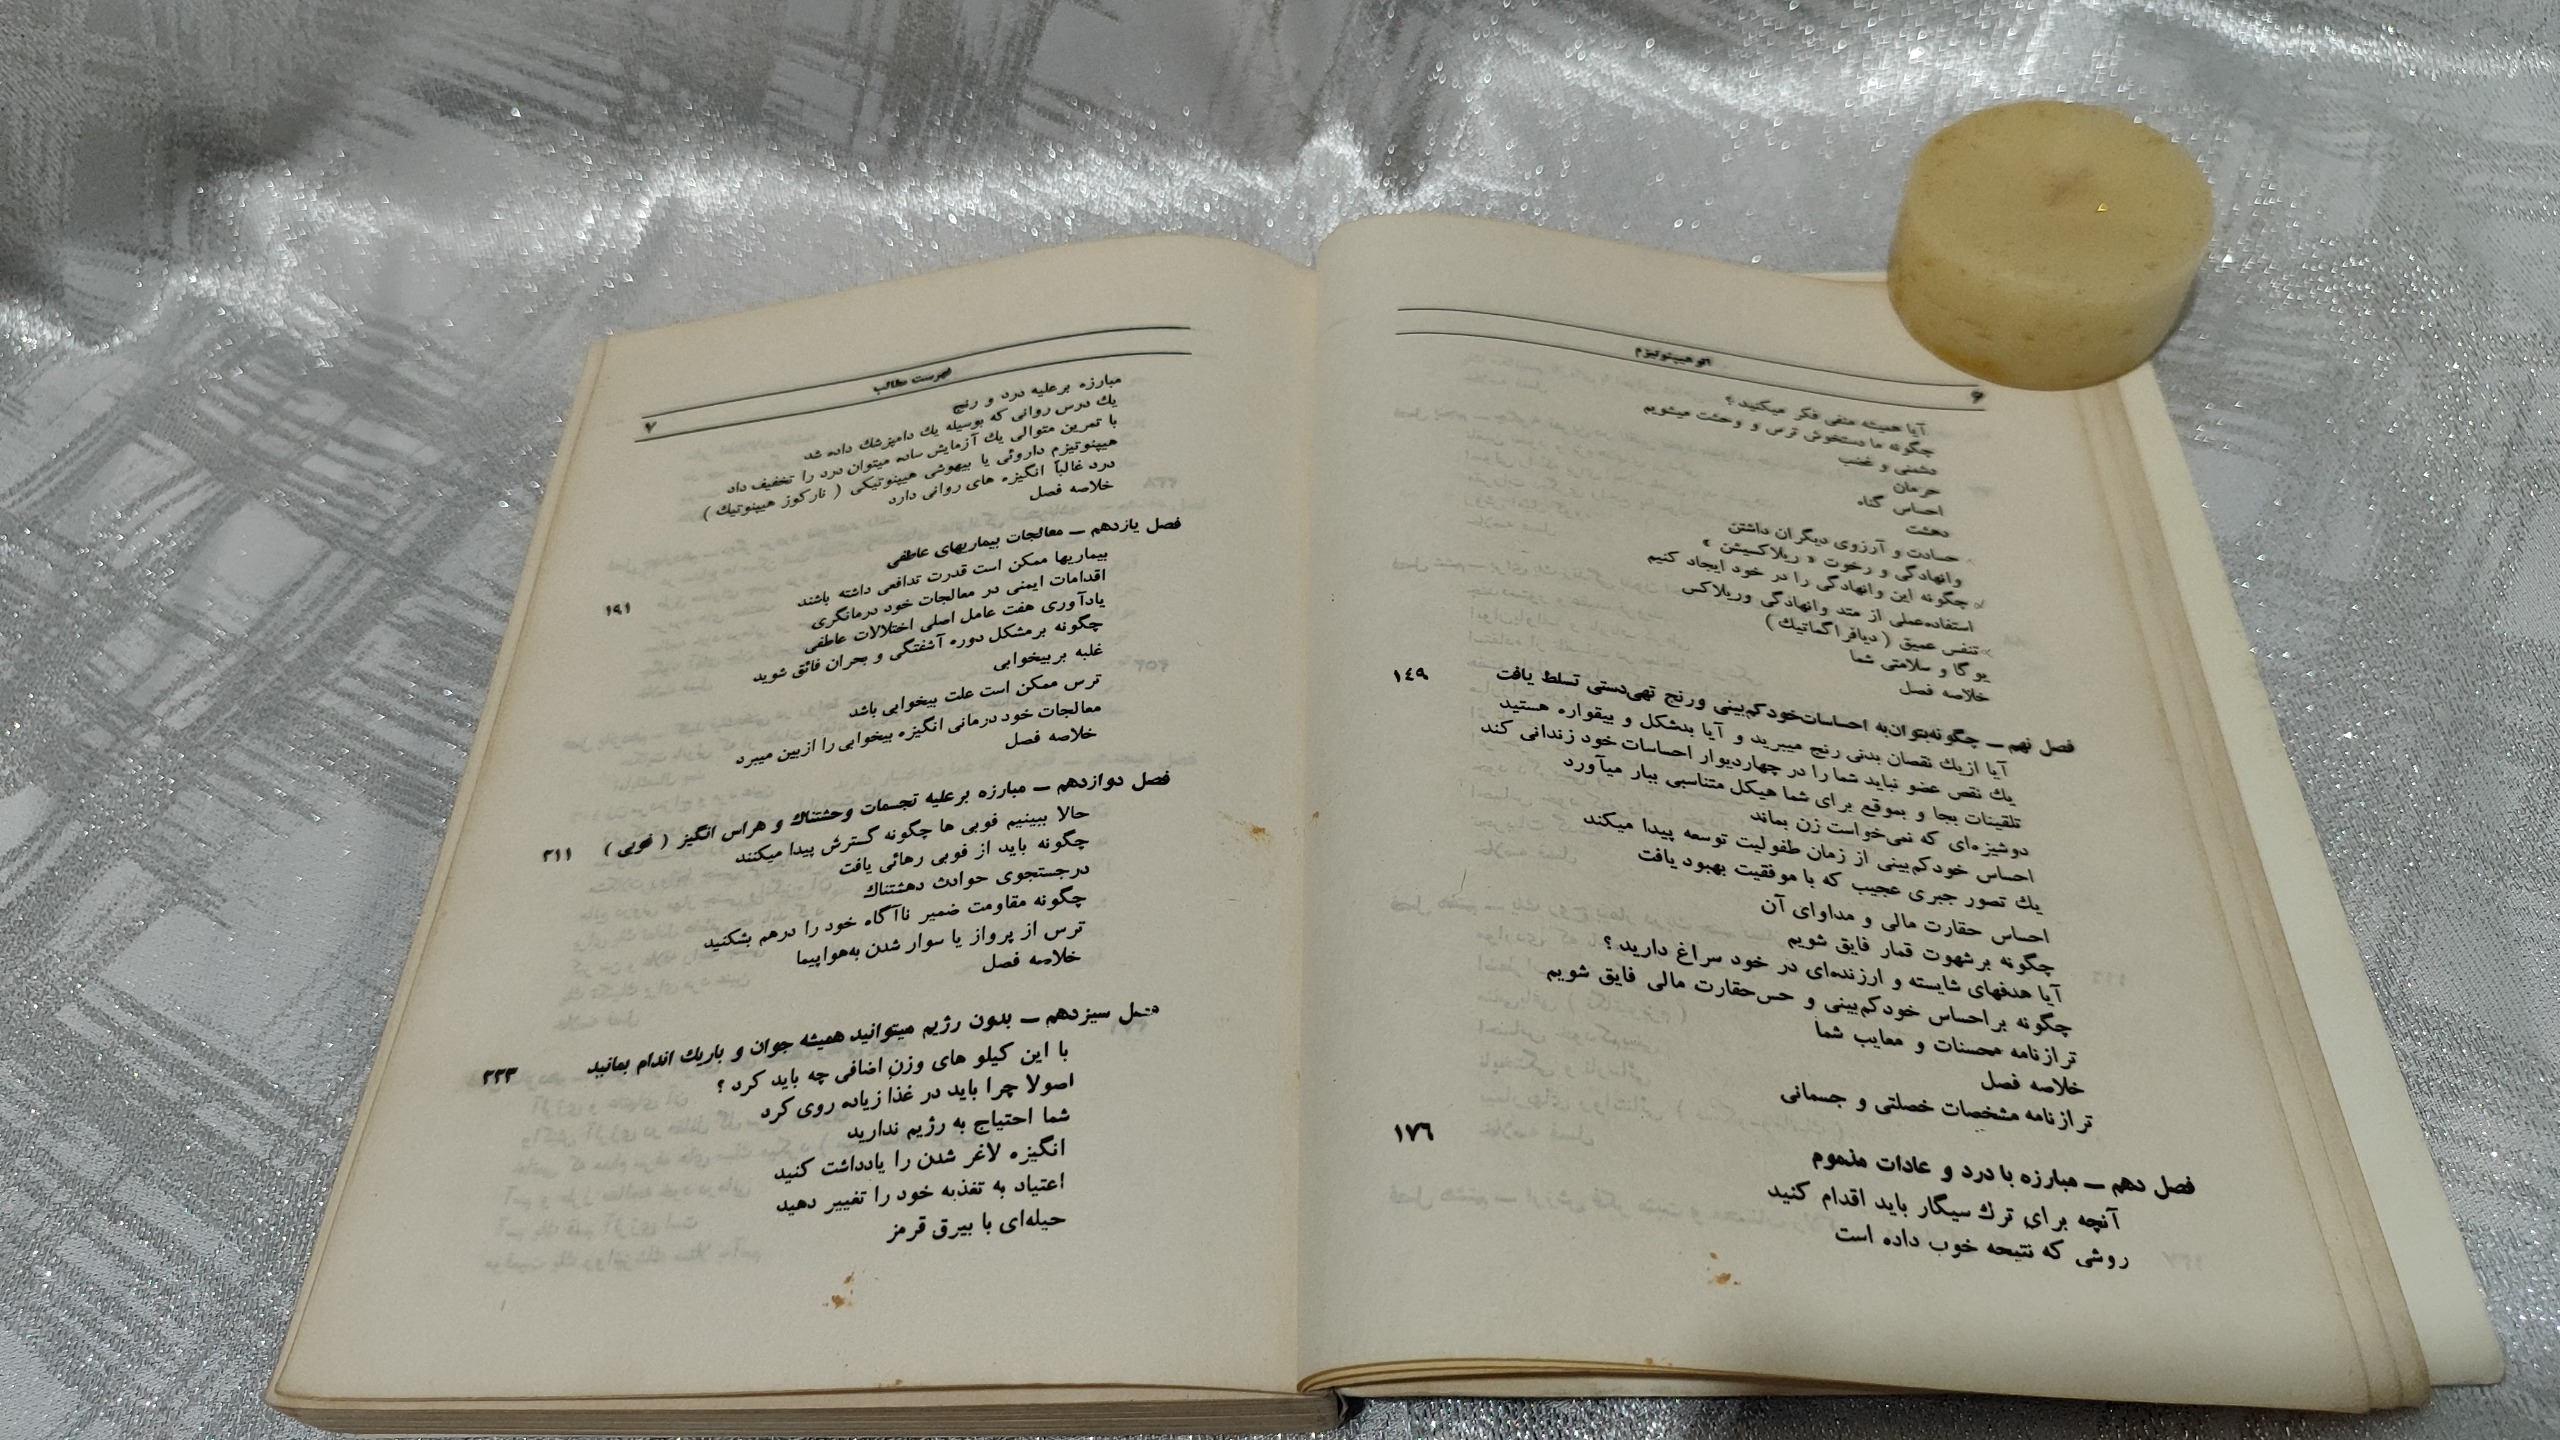 ۶
اتوهیپنوتیزم
آیا همیشه منفی فکر میکنید ؟
چگونه ما دستخوش ترس و وحشت میشویم
دشمنی و غضب
حرمان
احساس گناه
دهشت
حسادت و آرزوی دیگران داشتن
وانهادگی و رخوت « ریلاکسیشن »
چگونه این وانهادگی را در خود ایجاد کنیم
استفاده‌عملی از متد وانهادگی وریلاکس
تنفس عمیق ( دیافراگماتیك )
یوگا و سلامتی شما
خلاصه فصل
فصل نهم ــ چگونه‌بتوان‌به احساسات‌خودکم‌بینی ورنج تهی‌دستی تسلط یافت ۱٤۹
آیا ازیك نقصان بدنی رنج میبرید و آیا بدشکل و بیقواره هستید
یك نقص عضو نباید شما را در چهاردیوار احساسات خود زندانی کند
تلقینات بجا و بموقع برای شما هیکل متناسبی ببار میآورد
دوشیزه‌ای که نمی‌خواست زن بماند
احساس خودکم‌بینی از زمان طفولیت توسعه پیدا میکند
یك تصور جبری عجیب که با موفقیت بهبود یافت
احساس حقارت مالی و مداوای آن
چگونه برشهوت قمار فایق شویم
آیا هدفهای شایسته و ارزنده‌ای در خود سراغ دارید ؟
چگونه براحساس خودکم‌بینی و حس‌حقارت مالی فایق شویم
ترازنامه محسنات و معایب شما
خلاصه فصل
ترازنامه مشخصات خصلتی و جسمانی
فصل دهم ــ مبارزه با درد و عادات مذموم ۱۷٦
آنچه برای ترك سیگار باید اقدام کنید
روشی که نتیحه خوب داده است
فهرست مطالب
۷
مبارزه برعلیه درد و رنج
یك درس روانی که بوسیله یك دامپزشك داده شد
با تمرین متوالی یك آزمایش ساده میتوان درد را تخفیف داد
هیپنوتیزم داروئی یا بیهوشی هیپنوتیکی ( نارکوز هیپنوتیك )
درد غالباً انگیزه های روانی دارد
خلاصه فصل
فصل یازدهم ــ معالجات بیماریهای عاطفی ۱۹۱
بیماریها ممکن است قدرت تدافعی داشته باشند
اقدامات ایمنی در معالجات خود درمانگری
یادآوری هفت عامل اصلی اختلالات عاطفی
چگونه برمشکل دوره آشفتگی و بحران فائق شوید
غلبه بربیخوابی
ترس ممکن است علت بیخوابی باشد
معالجات خود درمانی انگیزه بیخوابی را ازبین میبرد
خلاصه فصل
فصل دوازدهم ــ مبارزه برعلیه تجسمات وحشتناك و هراس انگیز ( فوبی ) ۲۱۱
حالا ببینیم فوبی ها چگونه گسترش پیدا میکنند
چگونه باید از فوبی رهائی یافت
درجستجوی حوادث دهشتناك
چگونه مقاومت ضمیر ناآگاه خود را درهم بشکنید
ترس از پرواز یا سوار شدن به‌هواپیما
خلاصه فصل
فصل سیزدهم ــ بدون رژیم میتوانید همیشه جوان و باریك اندام بمانید ۲۲۳
با این کیلو های وزن اضافی چه باید کرد ؟
اصولا چرا باید در غذا زیاده روی کرد
شما احتیاج به رژیم ندارید
انگیزه لاغر شدن را یادداشت کنید
اعتیاد به تغذبه خود را تغییر دهید
حیله‌ای با بیرق قرمز